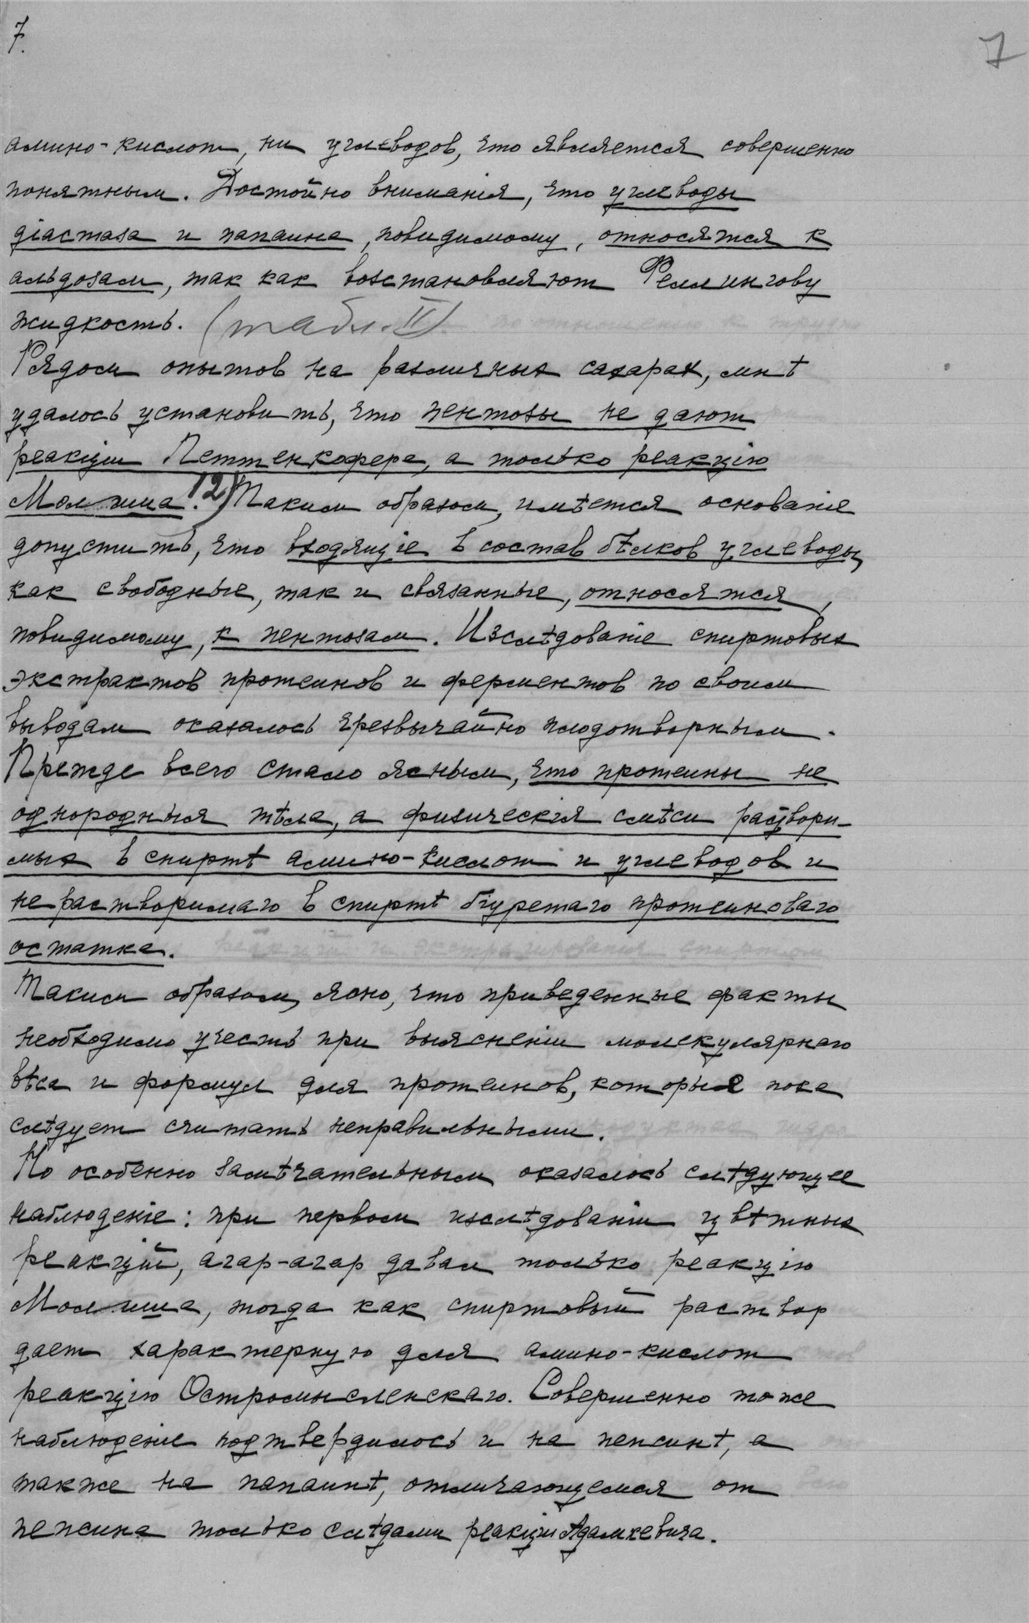 7.
7
амино-кислот, ни углеводов, что является совершенно
понятным. Достойно вниманія, что углеводы
діастаза и папаина, повидимому, относятся к
альдозам, так как возстановляют Феллингову
жидкость. (табл. II)
Рядом опытов на различных сахарах, мнѣ
удалось установить, что пентозы не дают
реакціи Петтенкофера, а только реакцію
Молиша. 12) Таким образом, имѣется основаніе
допустить, что входящіе в состав бѣлков углеводы,
как свободные, так и связанные, относятся,
повидимому, к пентозам. Изслѣдованіе спиртовых
экстрактов протеинов и ферментов по своим
выводам оказалось чрезвычайно плодотворным.
Прежде всего стало ясным, что протеины не
однородныя тѣла, а физическія смѣси раствори-
мых в спиртѣ амино-кислот и углеводов и
нерастворимаго в спиртѣ біуретаго протеиноваго
остатка.
Таким образом, ясно, что приведенные факты
необходимо учесть при выясненіи молекулярнаго
вѣса и формул для протеинов, которыя пока
слѣдует считать неправильными.
Но особенно замѣчательным оказалось слѣдующее
наблюденіе: при первом изслѣдованіи цвѣтных
реакцій, агар-агар давал только реакцію
Молиша, тогда как спиртовый раствор
дает характерную для амино-кислот
реакцію Остромысленскаго. Совершенно то же
наблюденіе подтвердилось и на пепсинѣ, а
также на папаинѣ, отличающемся от
пепсина только слѣдами реакціи Адамкевича.